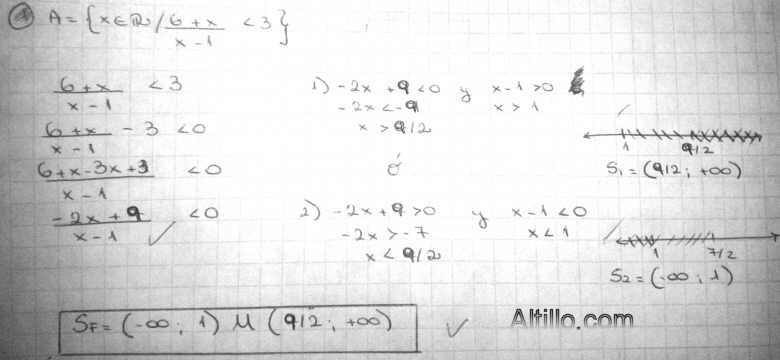 1) A = {x∈ℝ / (6+x)/(x-1) < 3}
(6+x)/(x-1) < 3
(6+x)/(x-1) - 3 < 0
(6+x-3x+3)/(x-1) < 0
(-2x+9)/(x-1) < 0 ✓
1) -2x+9<0 y x-1>0
-2x<-9 x>1
x>9/2
ó
2) -2x+9>0 y x-1<0
-2x>-7 x<1
x<9/2
1 9/2
S1 = (9/2; +∞)
1 7/2
S2 = (-∞; 1)
SF = (-∞; 1) U (9/2; +∞) ✓
Altillo.com